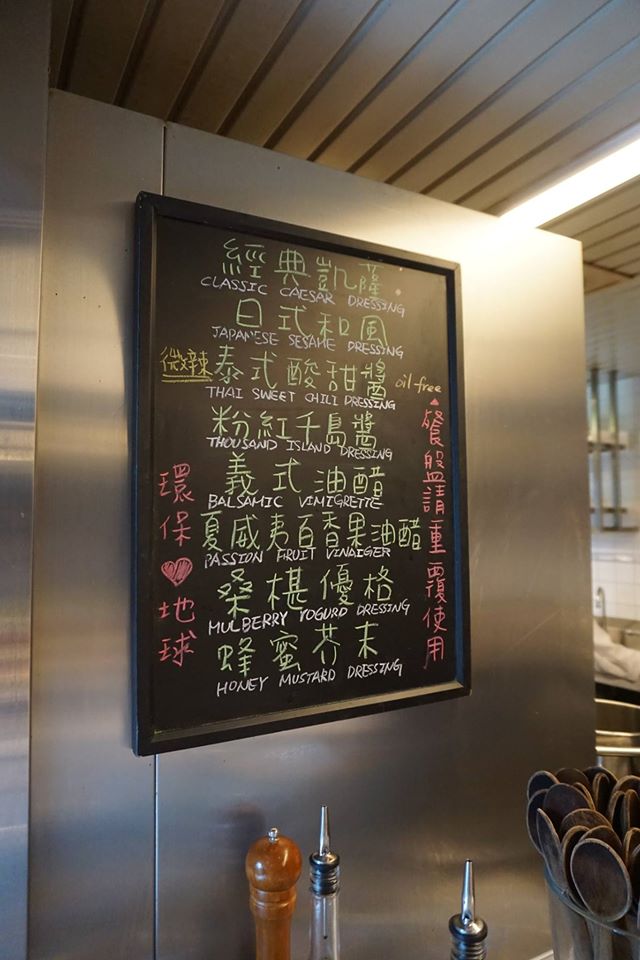 經典凱薩
CLASSIC CAESAR DRESSING
日式和風
JAPANESE SESAME DRESSING
微辣 泰式酸甜醬 oil free
THAI SWEET CHILI DRESSING
粉紅千島醬
THOUSAND ISLAND DRESSING
義式油醋
BALSAMIC VIMIGRETTE
夏威夷百香果油醋
PASSION FRUIT VINAIGER
桑椹優格
MULBERRY YOGURD DRESSING
蜂蜜芥末
HONEY MUSTARD DRESSING
環保❤地球
餐盤請重覆使用